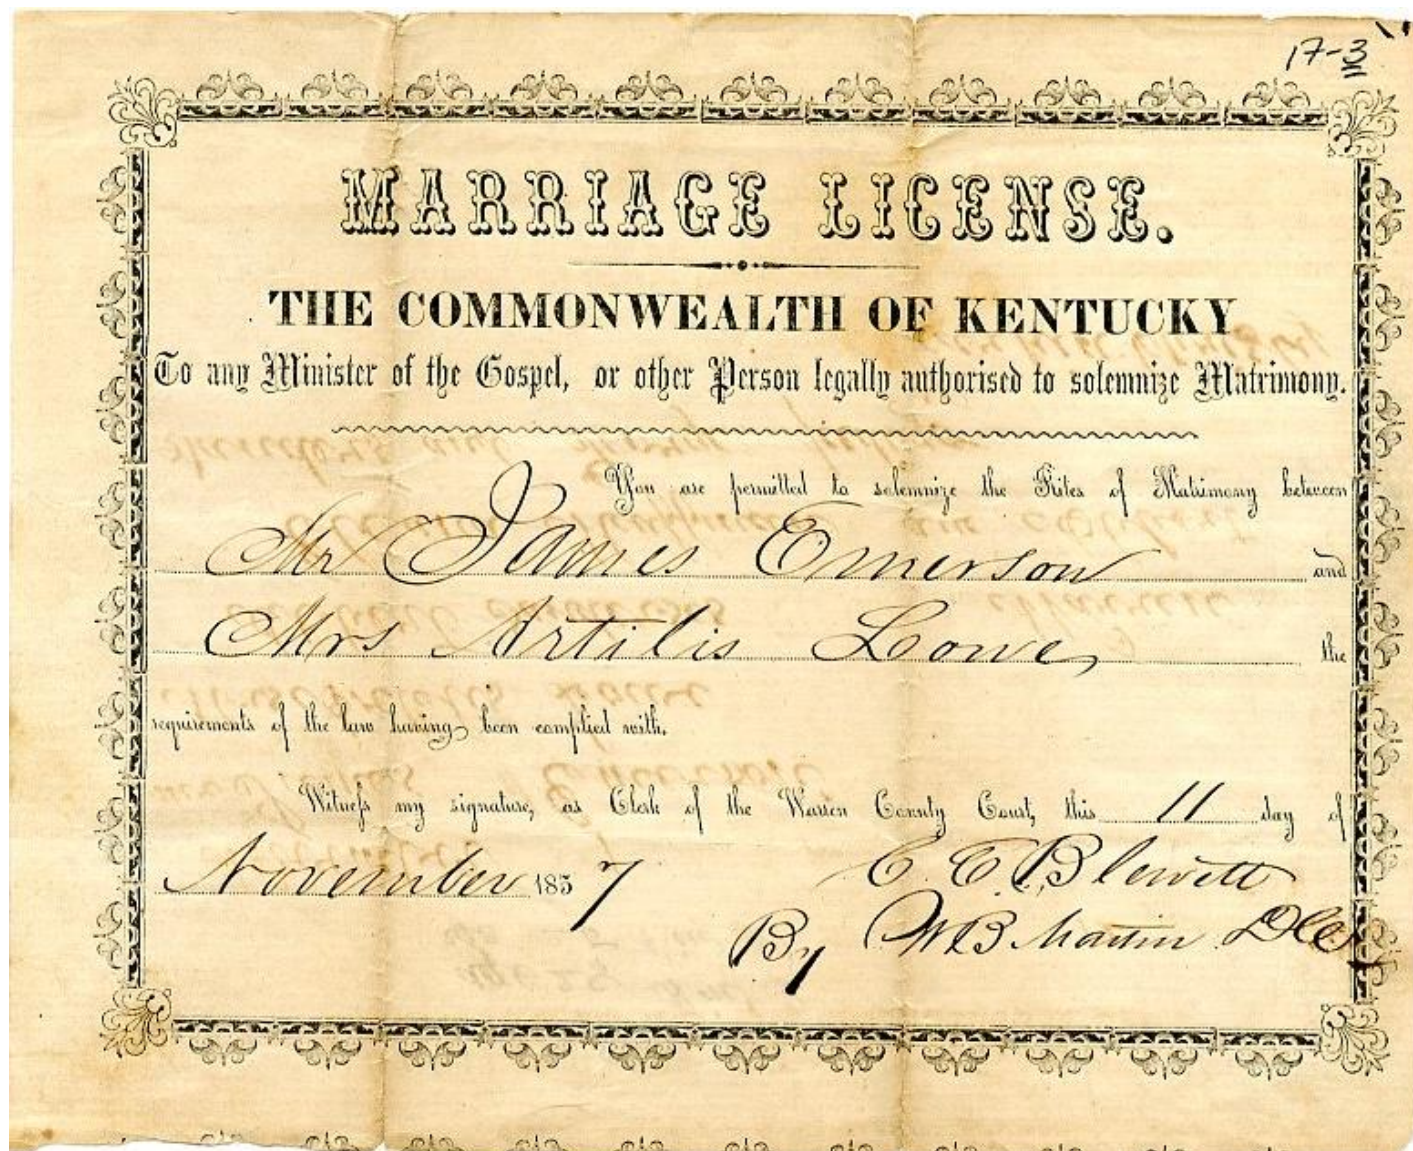 17-3
MARRIAGE LICENSE.
THE COMMONWEALTH OF KENTUCKY
To any Minister of the Gospel, or other Person legally authorised to solemnize Matrimony.
You are permitted to solemnize the Rites of Matrimony between
Mr James Emerson and
Mrs Artilis Lowe the
requirements of the law having been complied with.
Witness my signature, as Clerk of the Warren County Court, this 11 day of
November 1857 C. C. Blewett
By W B Martin DC